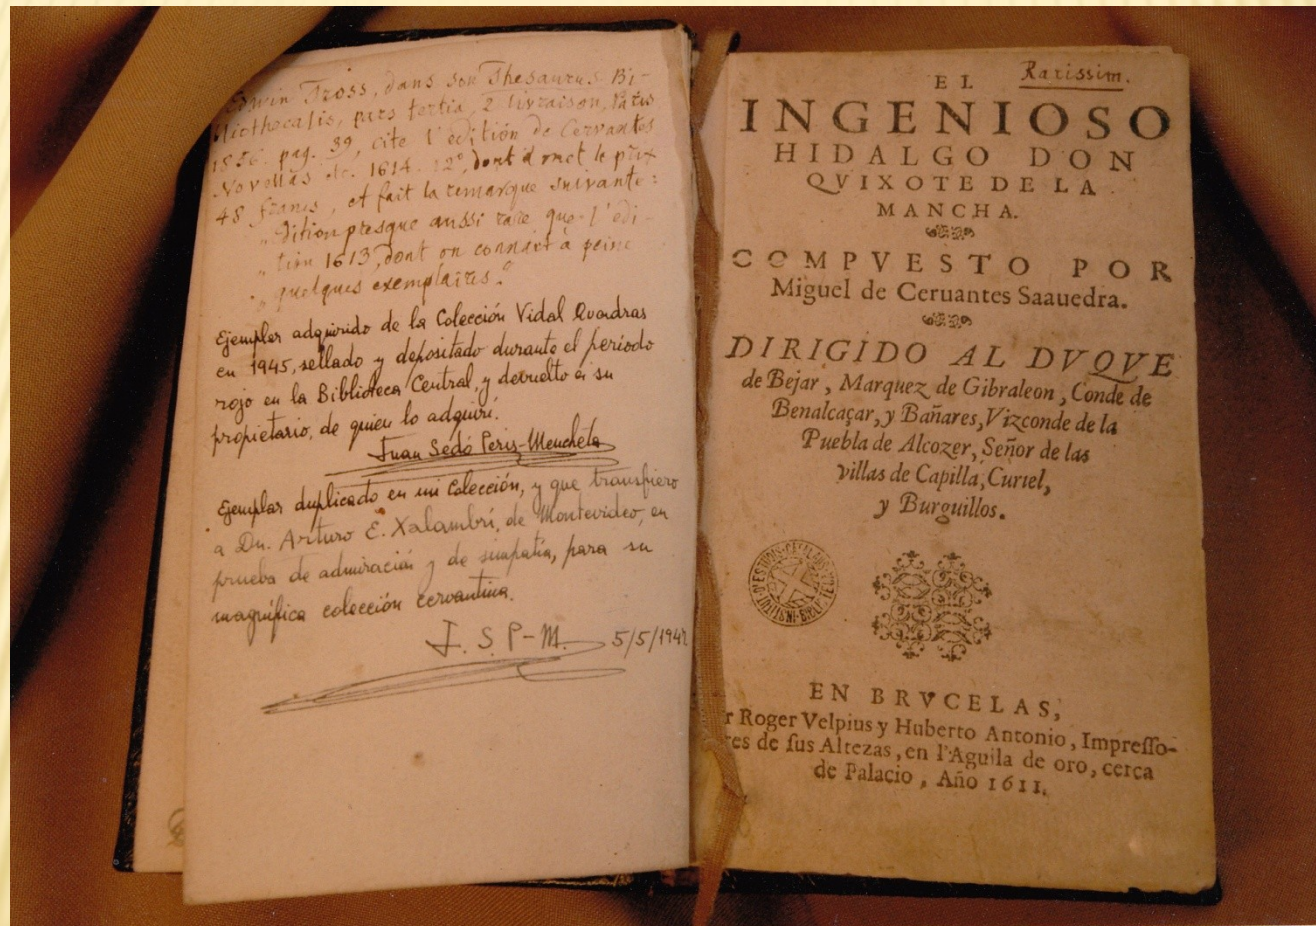 Edwin Tross, dans son Thesaurus Bi-
bliothecalis, pars tertia, 2 livraison, Paris
1856 pag. 39, cite l'edition de Cervantes
Novellas etc. 1614. 12°, dont il met le prix
48 francs, et fait la remarque suivante:
„Edition presque aussi rare que l'edi-
„tion 1613, dont on connait à peine
„quelques exemplaires."
Ejemplar adquirido de la Colección Vidal Quadras
en 1945, sellado y depositado durante el período
rojo en la Biblioteca Central, y devuelto a su
propietario, de quien lo adquirí.
Juan Sedó Peris-Mencheta
Ejemplar duplicado en mi Colección, y que transfiero
a Dn. Arturo E. Xalambrí, de Montevideo, en
prueba de admiración y de simpatía, para su
magnífica colección cervantina.
J. S. P-M. 5/5/194
Rarissim.
EL
INGENIOSO
HIDALGO DON
QVIXOTE DE LA
MANCHA.
COMPVESTO POR
Miguel de Ceruantes Saauedra.
DIRIGIDO AL DVQVE
de Bejar, Marquez de Gibraleon, Conde de
Benalcaçar, y Bañares, Vizconde de la
Puebla de Alcozer, Señor de las
villas de Capilla, Curiel,
y Burguillos.
INSTITUT D'ESTUDIS CATALANS
EN BRVCELAS,
r Roger Velpius y Huberto Antonio, Impresso-
res de sus Altezas, en l'Aguila de oro, cerca
de Palacio, Año 1611.